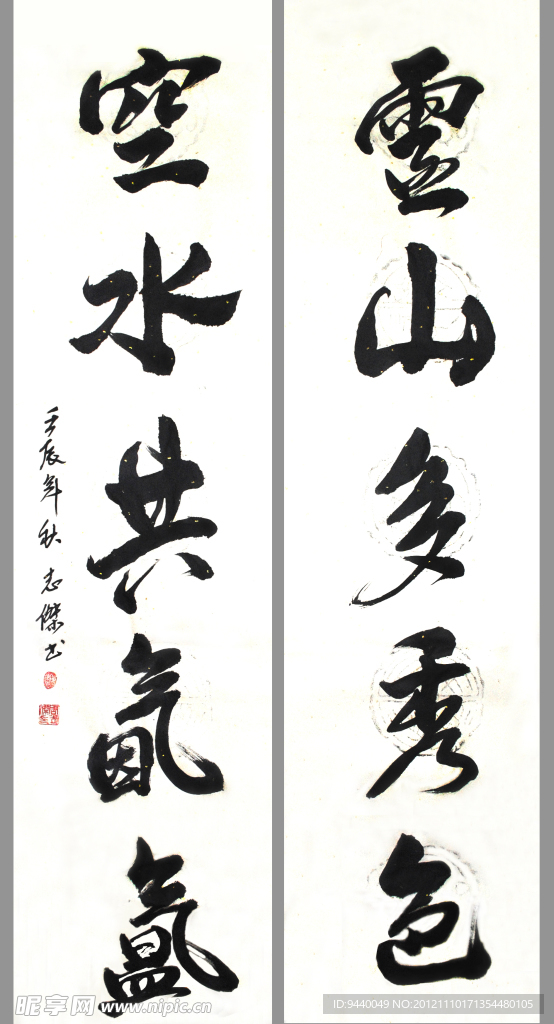 靈山多秀色
空水共氤氳
壬辰年秋 志傑书
昵享网 www.nipic.cn
ID:9440049 NO:20121110171354480105